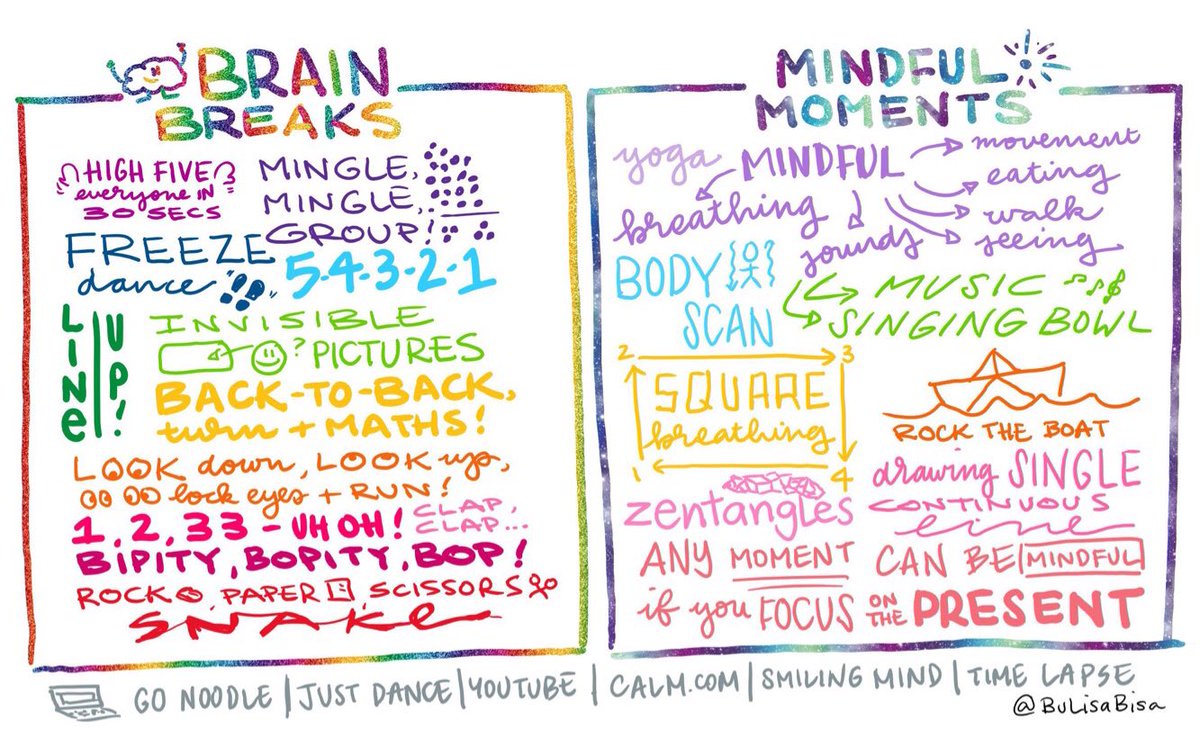 BRAIN
BREAKS
HIGH FIVE
everyone IN
30 SECS
MINGLE,
MINGLE,
GROUP!
FREEZE
dance
5-4-3-2-1
LINE
UP!
INVISIBLE
? PICTURES
BACK-TO-BACK,
turn + MATHS!
LOOK down, LOOK up,
lock eyes + RUN!
1, 2, 33 - UH OH!
CLAP,
CLAP...
BIPITY, BOPITY, BOP!
ROCK, PAPER, SCISSORS
SNAKE
MINDFUL
MOMENTS
yoga
MINDFUL
movement
eating
breathing
walk
sounds
seeing
BODY
SCAN
MUSIC
SINGING BOWL
2
3
SQUARE
breathing
1
4
ROCK THE BOAT
zentangles
drawing SINGLE
CONTINUOUS
line
ANY MOMENT CAN BE MINDFUL
if you FOCUS ON THE PRESENT
GO NOODLE | JUST DANCE | YOUTUBE | CALM.COM | SMILING MIND | TIME LAPSE
@BuLisaBisa